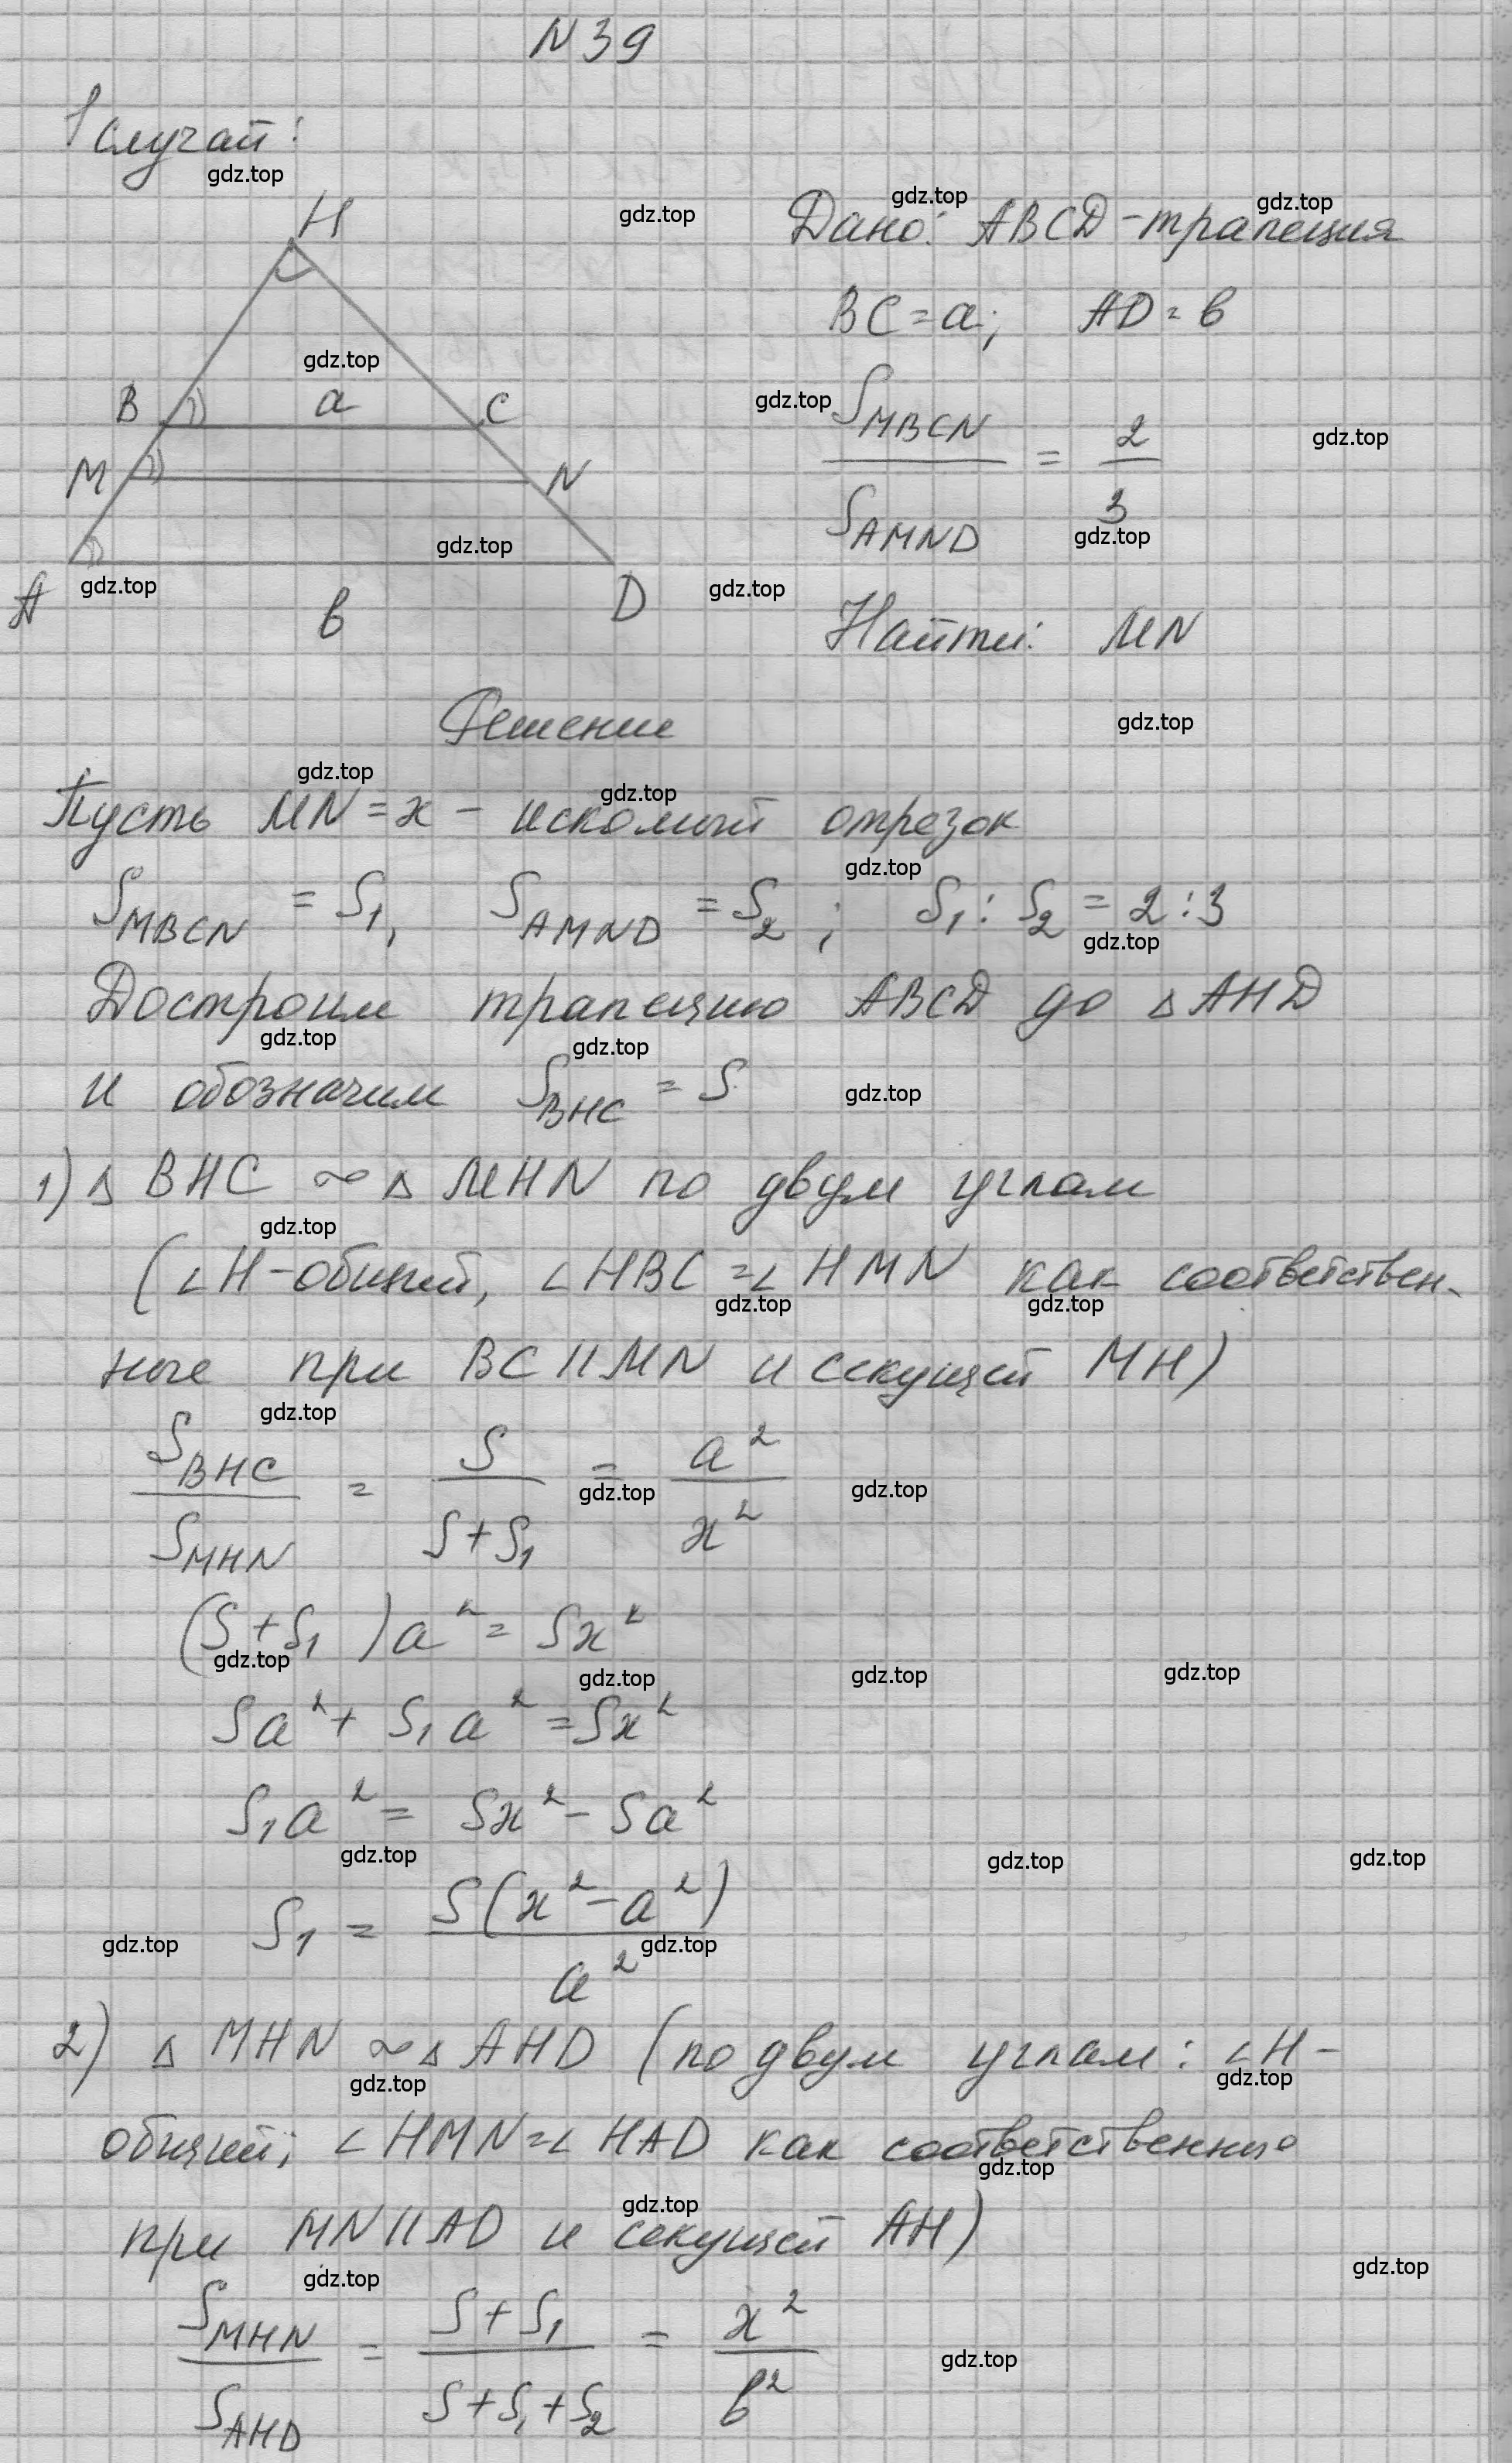 N 39
1 случай:
H
B a C
M N
A b D
Дано: ABCD - трапеция
BC = a; AD = b
S_MBCN / S_AMND = 2/3
Найти: MN
Решение
Пусть MN = x - искомый отрезок
S_MBCN = S₁, S_AMND = S₂; S₁ : S₂ = 2 : 3
Достроим трапецию ABCD до △ AHD
и обозначим S_BHC = S
1) △ BHC ∾ △ MHN по двум углам
(∠H - общий, ∠HBC = ∠HMN как соответствен-
ные при BC || MN и секущей MH)
S_BHC / S_MHN = S / (S + S₁) = a² / x²
(S + S₁) a² = Sx²
Sa² + S₁a² = Sx²
S₁a² = Sx² - Sa²
S₁ = S(x² - a²) / a²
2) △ MHN ∾ △ AHD (по двум углам: ∠H -
общий; ∠HMN = ∠HAD как соответственные
при MN || AD и секущей AH)
S_MHN / S_AHD = (S + S₁) / (S + S₁ + S₂) = x² / b²
gdz.top